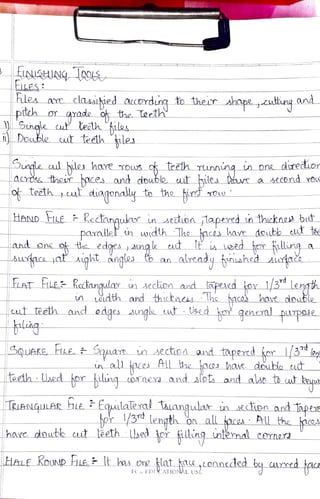 FINISHING TOOLS
FILES:
Files are classified according to their shape, cutting and
pitch or grade of the teeth
i) Single cut teeth files
ii) Double cut teeth files
Single cut files have rows of teeth running in one direction
across their faces and double cut files have a second row
of teeth, cut diagonally to the first row.
HAND FILE :- Rectangular in section, tapered in thickness but
parallel in width The faces have double cut
and one of the edges, single cut It is used for filling a
surface, at right angles to an already finished surface.
FLAT FILE:- Rectangular in section and tapered for 1/3rd length
in width and thickness. The faces have double
cut teeth and edges single cut. Used for general purpose
filing.
SQUARE FILE :- Square in section and tapered for 1/3rd
in all faces All the faces have double cut
teeth. Used for filing corners and slots and also to cut
TRIANGULAR FILE :- Equilateral triangular in section and
for 1/3rd length on all faces. All the faces
have double cut teeth Used for filling internal corners
HALF ROUND FILE :- It has one flat face, connected by curved face
EDUCATIONAL USE